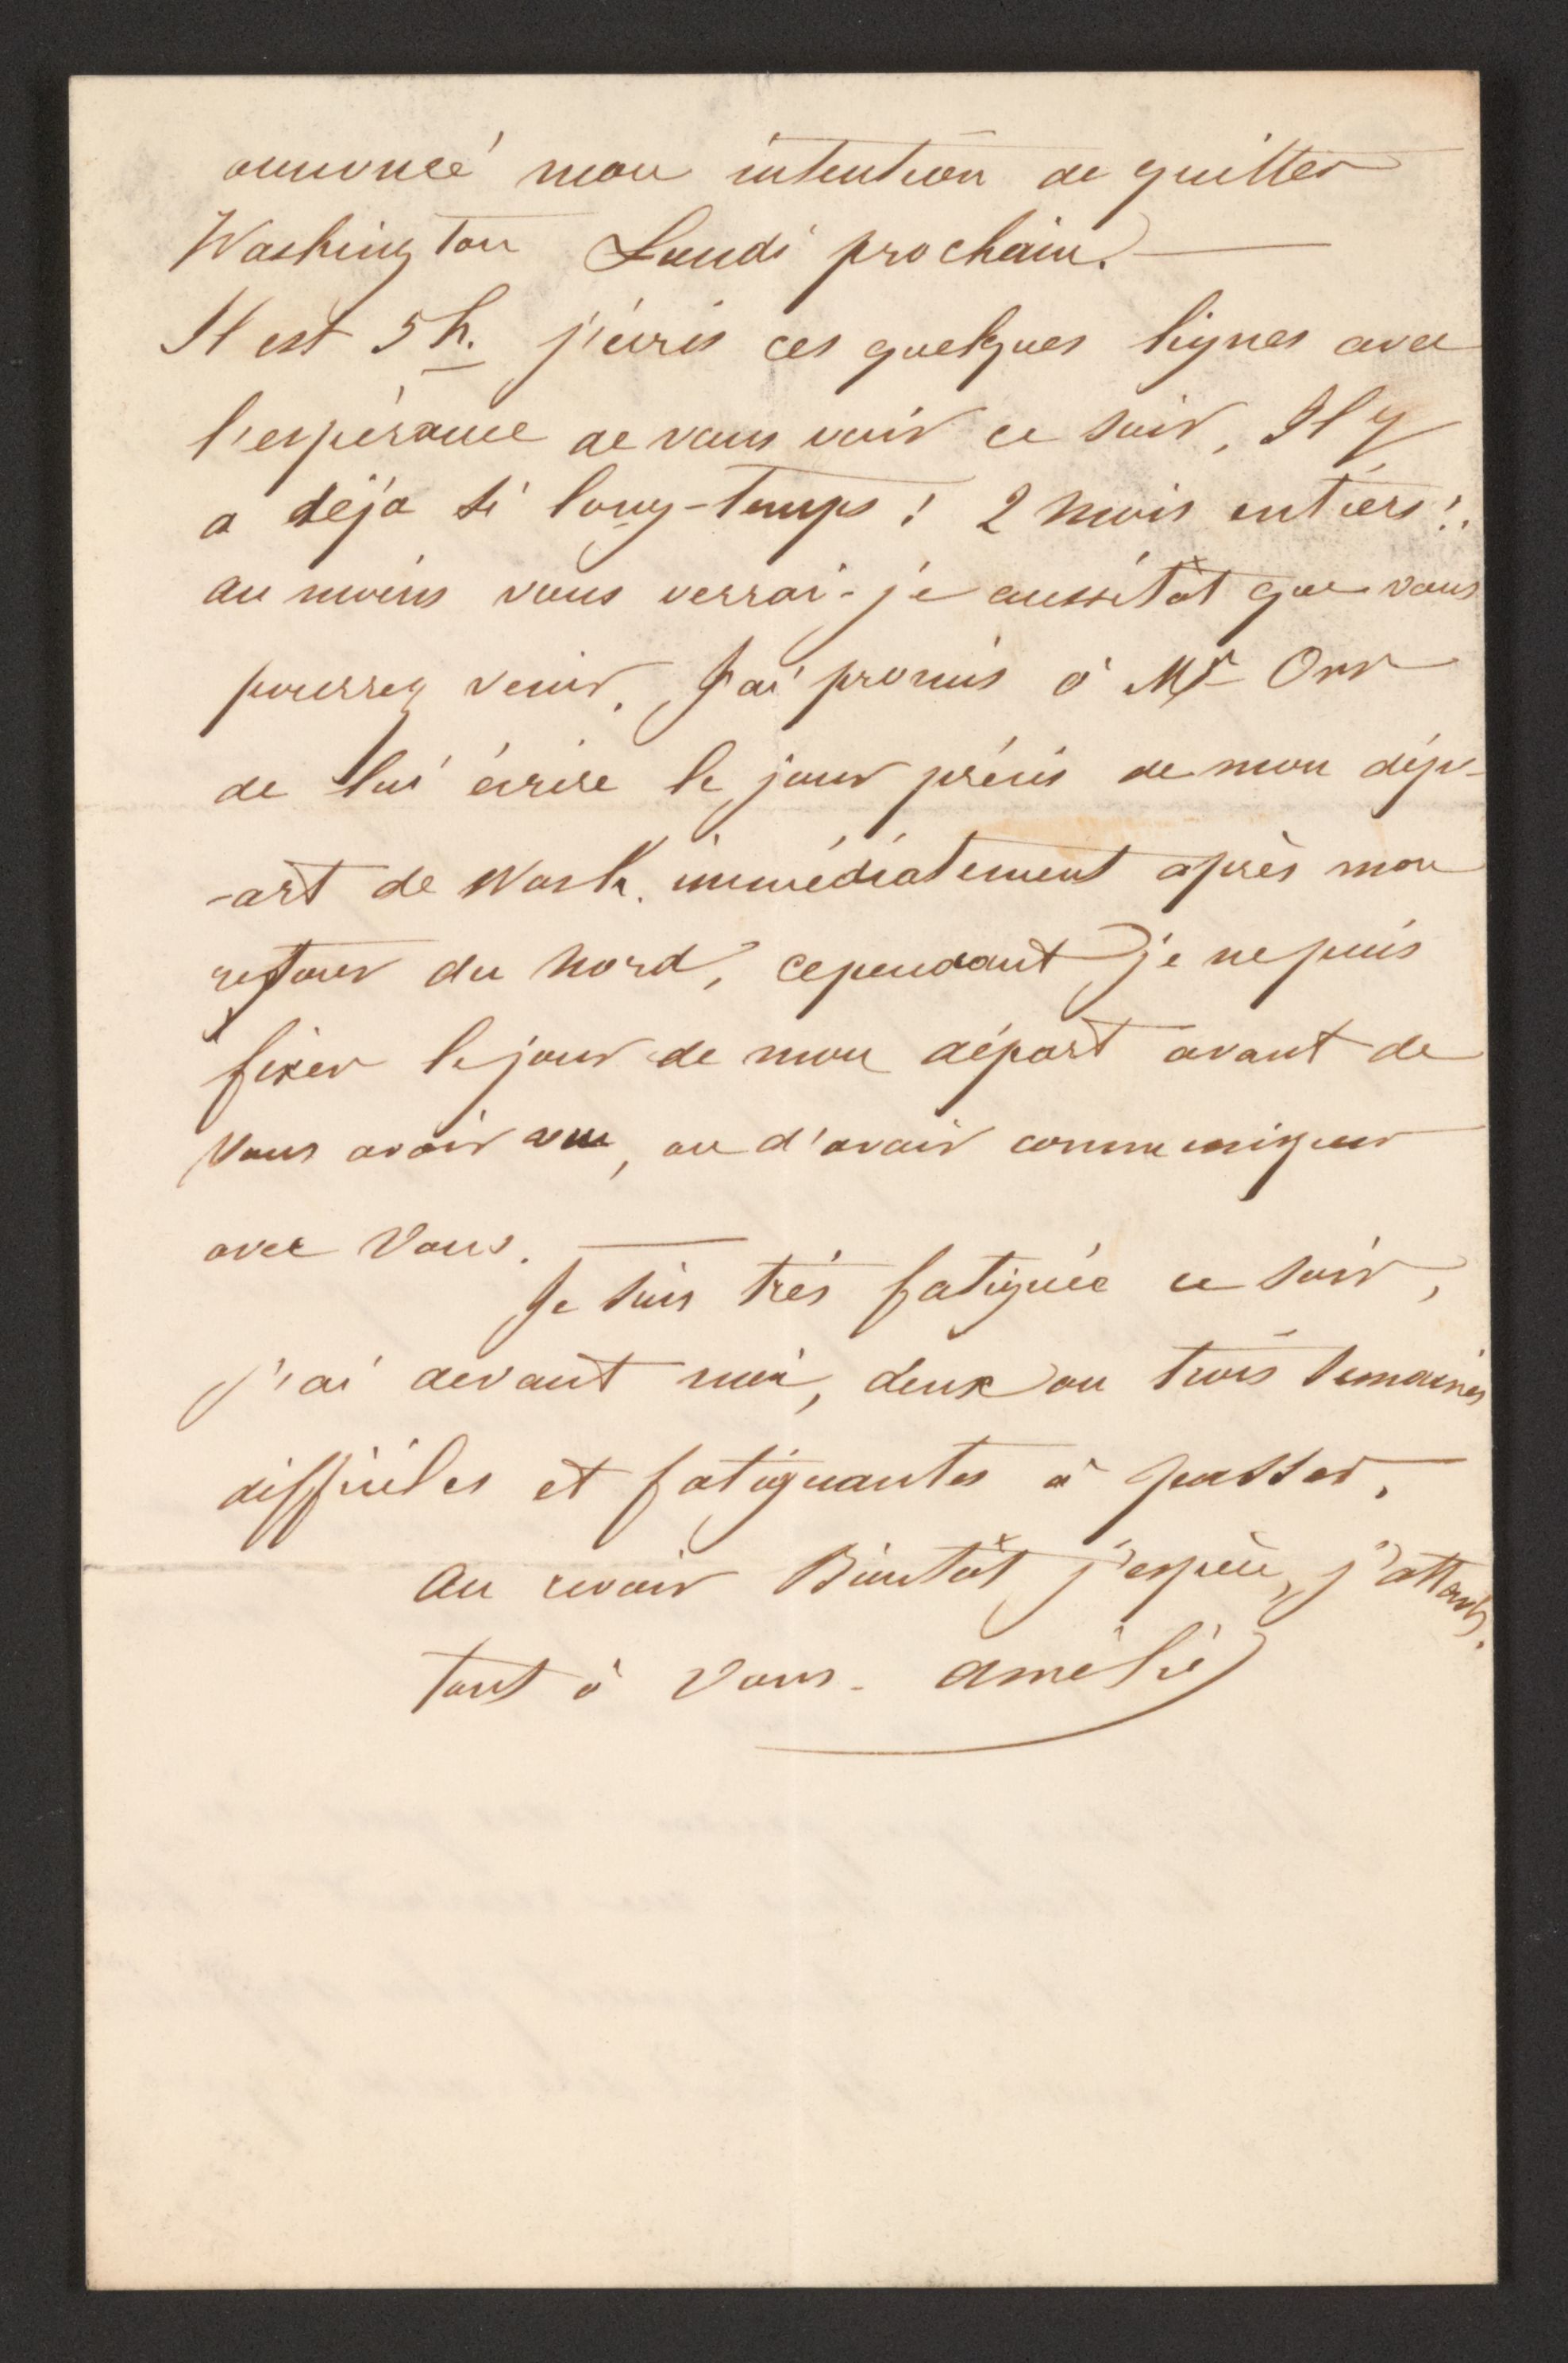 annoncé mon intention de quitter
Washington Lundi prochain. —
Il est 5 h. j'écris ces quelques lignes avec
l'espérance de vous voir ce soir, Il y
a déja si long-temps! 2 mois entiers!.
au moins vous verrai-je aussitôt que vous
pourrez venir. J'ai promis à Mr Orr
de lui écrire le jour précis de mon dép-
-art de Wash. immédiatement après mon
retour du Nord, cependant je ne puis
fixer le jour de mon départ avant de
vous avoir vu, ou d'avoir communiquer
avec Vous. —
Je suis très fatiguée ce soir,
j'ai devant moi, deux ou trois semaines
difficiles et fatiguantes à passer.
au revoir Bientôt j'espère, j'attends.
tout à Vous - Amélie